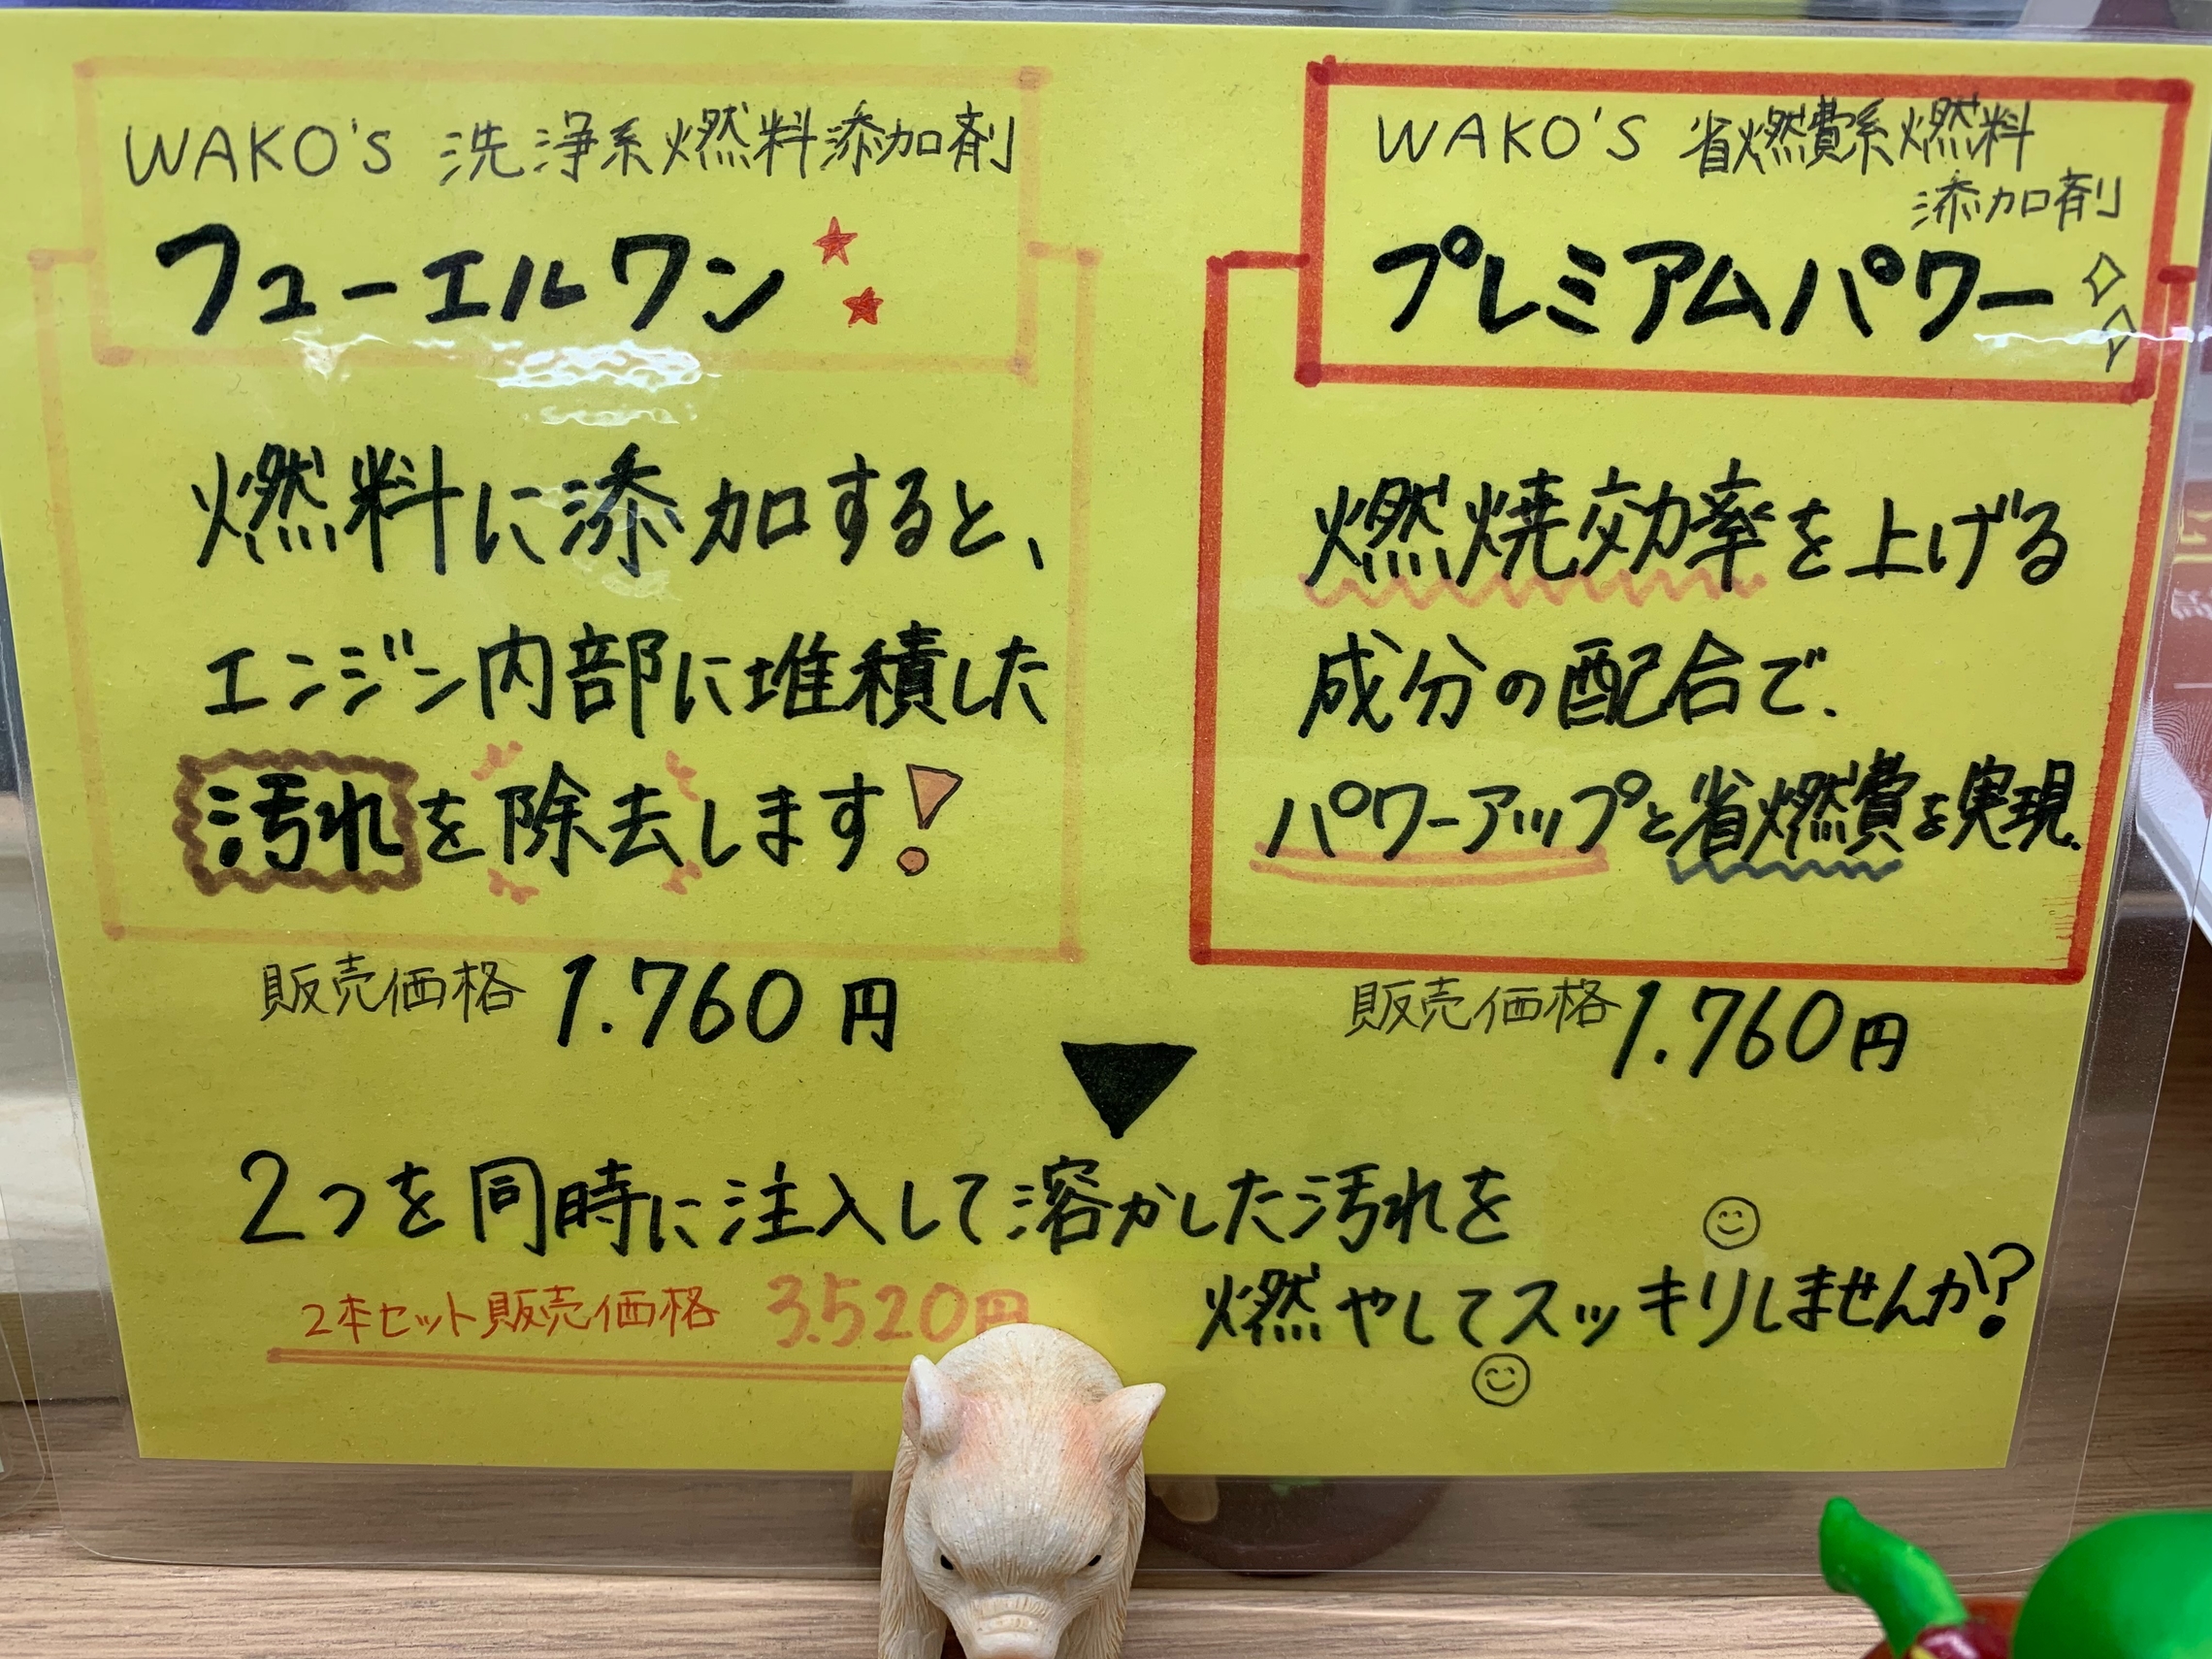 WAKO'S 洗浄系燃料添加剤
フューエルワン
燃料に添加すると、
エンジン内部に堆積した
汚れを除去します!
販売価格 1.760円
WAKO'S 省燃費系燃料
添加剤
プレミアムパワー
燃焼効率を上げる
成分の配合で、
パワーアップと省燃費を実現.
販売価格 1.760円
2つを同時に注入して溶かした汚れを
燃やしてスッキリしませんか?
2本セット販売価格 3.520円